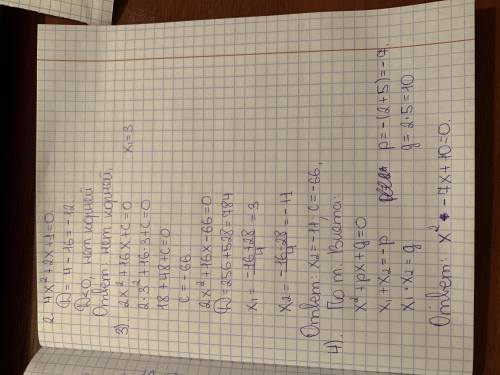 2. 4x²+2x+1=0
D = 4 - 16 = -12
D<0, нет корней
Ответ: нет корней.
3) 2x²+16x+c=0 x₁=3
2·3²+16·3+c=0
18+48+c=0
c = -66
2x²+16x-66=0
D=256+528=784
x₁ = (-16+28)/4 = 3
x₂ = (-16-28)/4 = -11
Ответ: x₂=-11; c=-66.
4). По т. Виета:
x²+px+q=0
x₁+x₂=-p p=-(2+5)=-7
x₁·x₂=q q=2·5=10
Ответ: x²-7x+10=0.